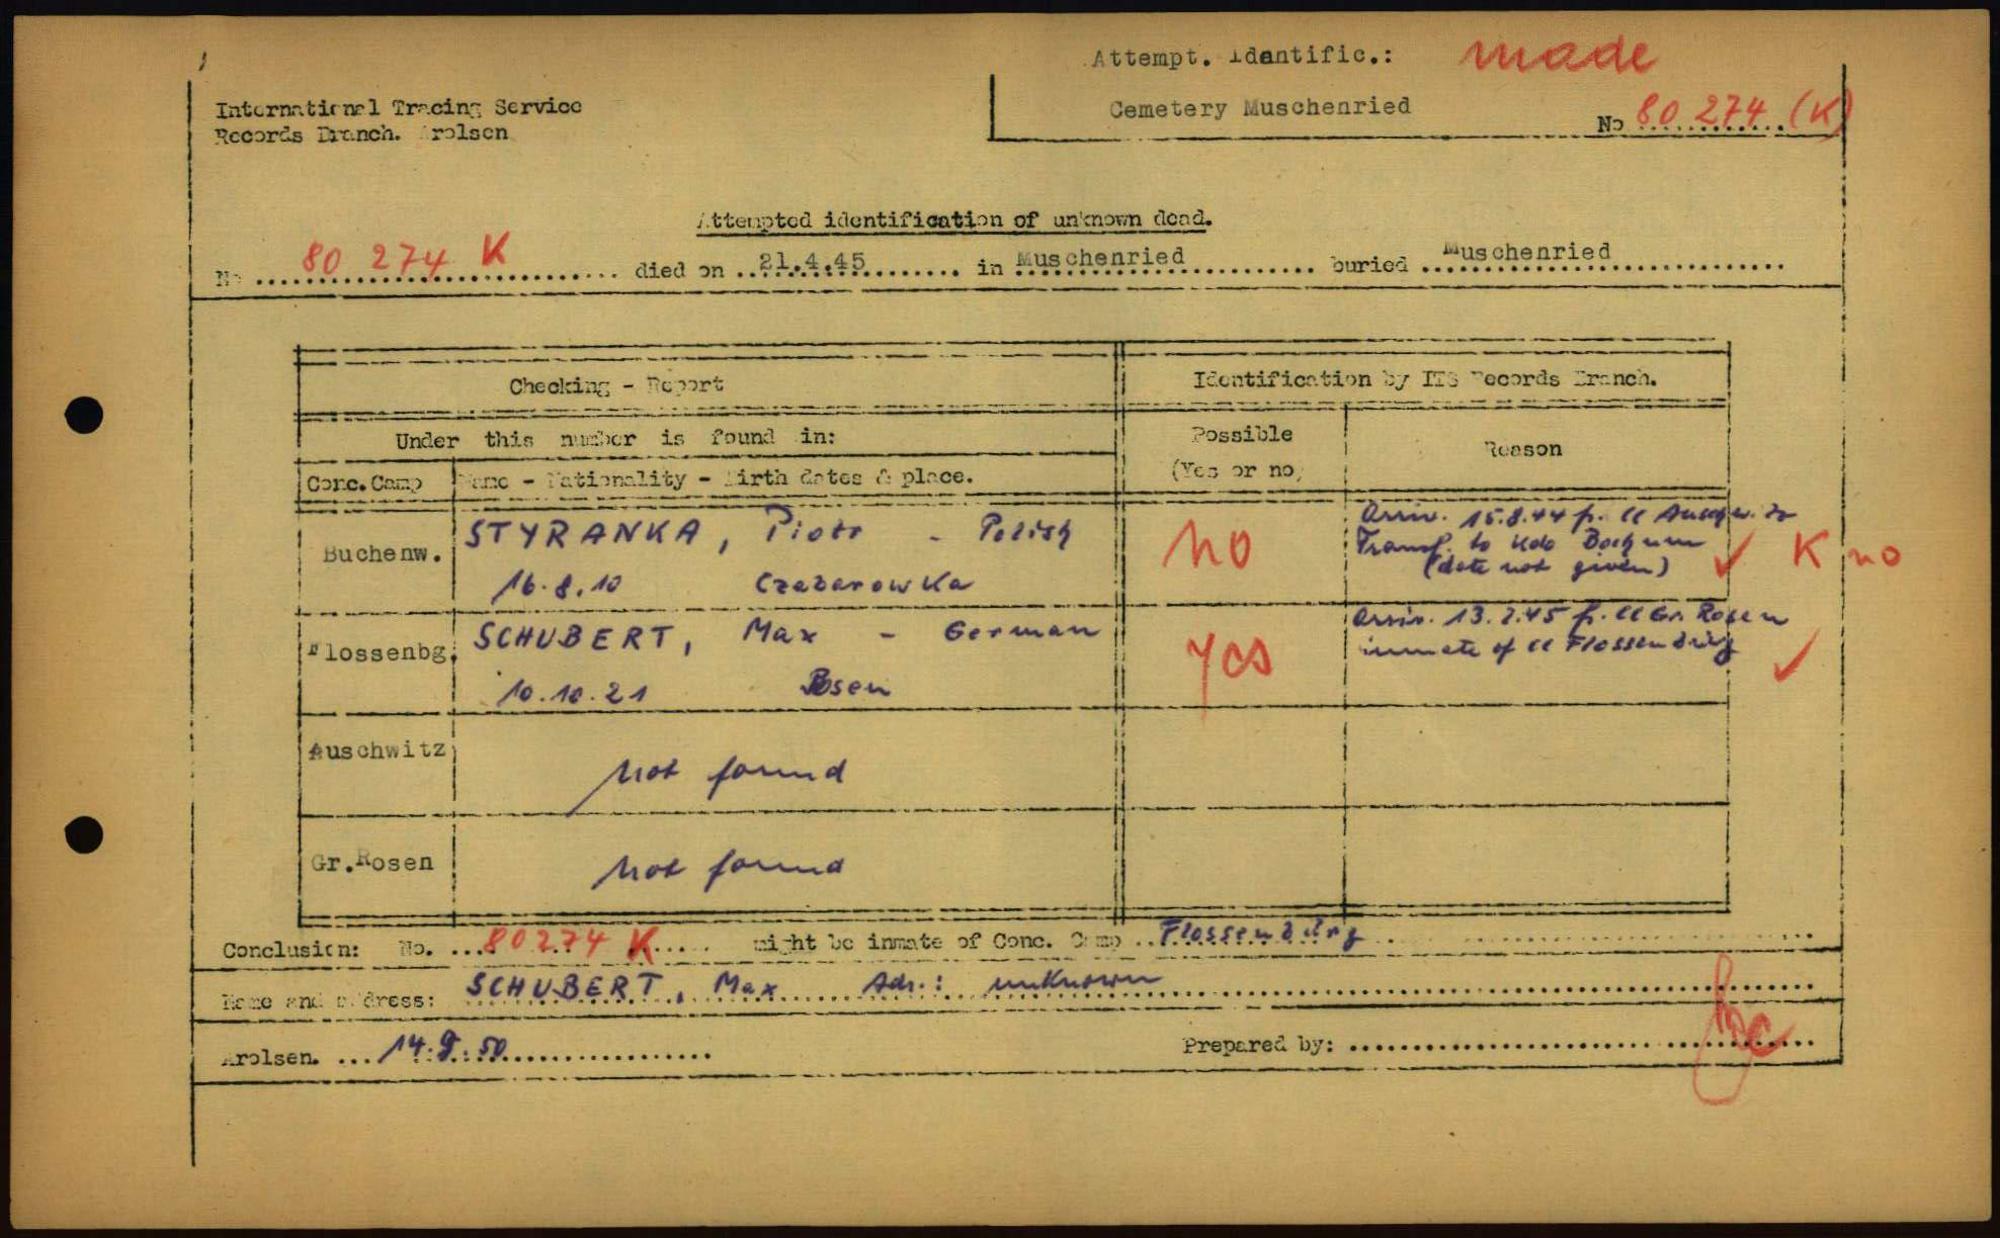 Attempt. Identific.: made
International Tracing Service
Records Branch. Arolsen
Cemetery Muschenried
No 80 274 (K)
Attempted identification of unknown dead.
No 80 274 K died on 21.4.45 in Muschenried buried Muschenried
Checking - Report
Identification by ITS Records Branch.
Under this number is found in:
Possible
(Yes or no)
Reason
Conc.Camp Name - Nationality - Birth dates & place.
Buchenw.
STYRANKA, Piotr - Polish
16.8.10 Czabarowka
no
Arriv. 15.8.44 f. CC Auschw.
Transf. to Kdo Bochum
(date not given)
K no
Flossenbg.
SCHUBERT, Max - German
10.10.21 Posen
yes
Arriv. 13.2.45 f. CC Gr. Rosen
inmate of CC Flossenbürg
Auschwitz
not found
Gr.Rosen
not found
Conclusion: No. 80274 K might be inmate of Conc. Camp Flossenbürg
Name and address: SCHUBERT, Max Adr.: unknown
Arolsen. 14.9.50
Prepared by: